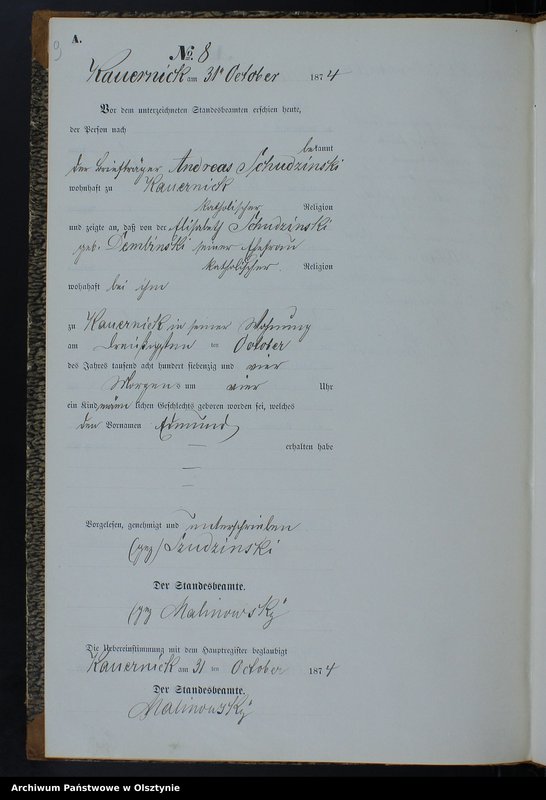 9
A.
No. 8
Kauernick am 31t October 1874
Vor dem unterzeichneten Standesbeamten erschien heute,
der Person nach
bekannt
der Briefträger Andreas Schudzinski
wohnhaft zu Kauernick
katholischer Religion
und zeigte an, daß von der Elisabeth Schudzinski
geb. Dembinski seiner Ehefrau
katholischer Religion
wohnhaft bei ihm
zu Kauernick in seiner Wohnung
am dreißigsten ten October
des Jahres tausend acht hundert siebenzig und vier
Morgens um vier Uhr
ein Kind männlichen Geschlechts geboren worden sei, welches
den Vornamen Edmund
erhalten habe
Vorgelesen, genehmigt und unterschrieben
(gez) Szudzinski
Der Standesbeamte.
(gz Malinowsky
Die Uebereinstimmung mit dem Hauptregister beglaubigt
Kauernick am 31 ten October 1874
Der Standesbeamte.
Malinowsky
Archiwum Państwowe w Olsztynie